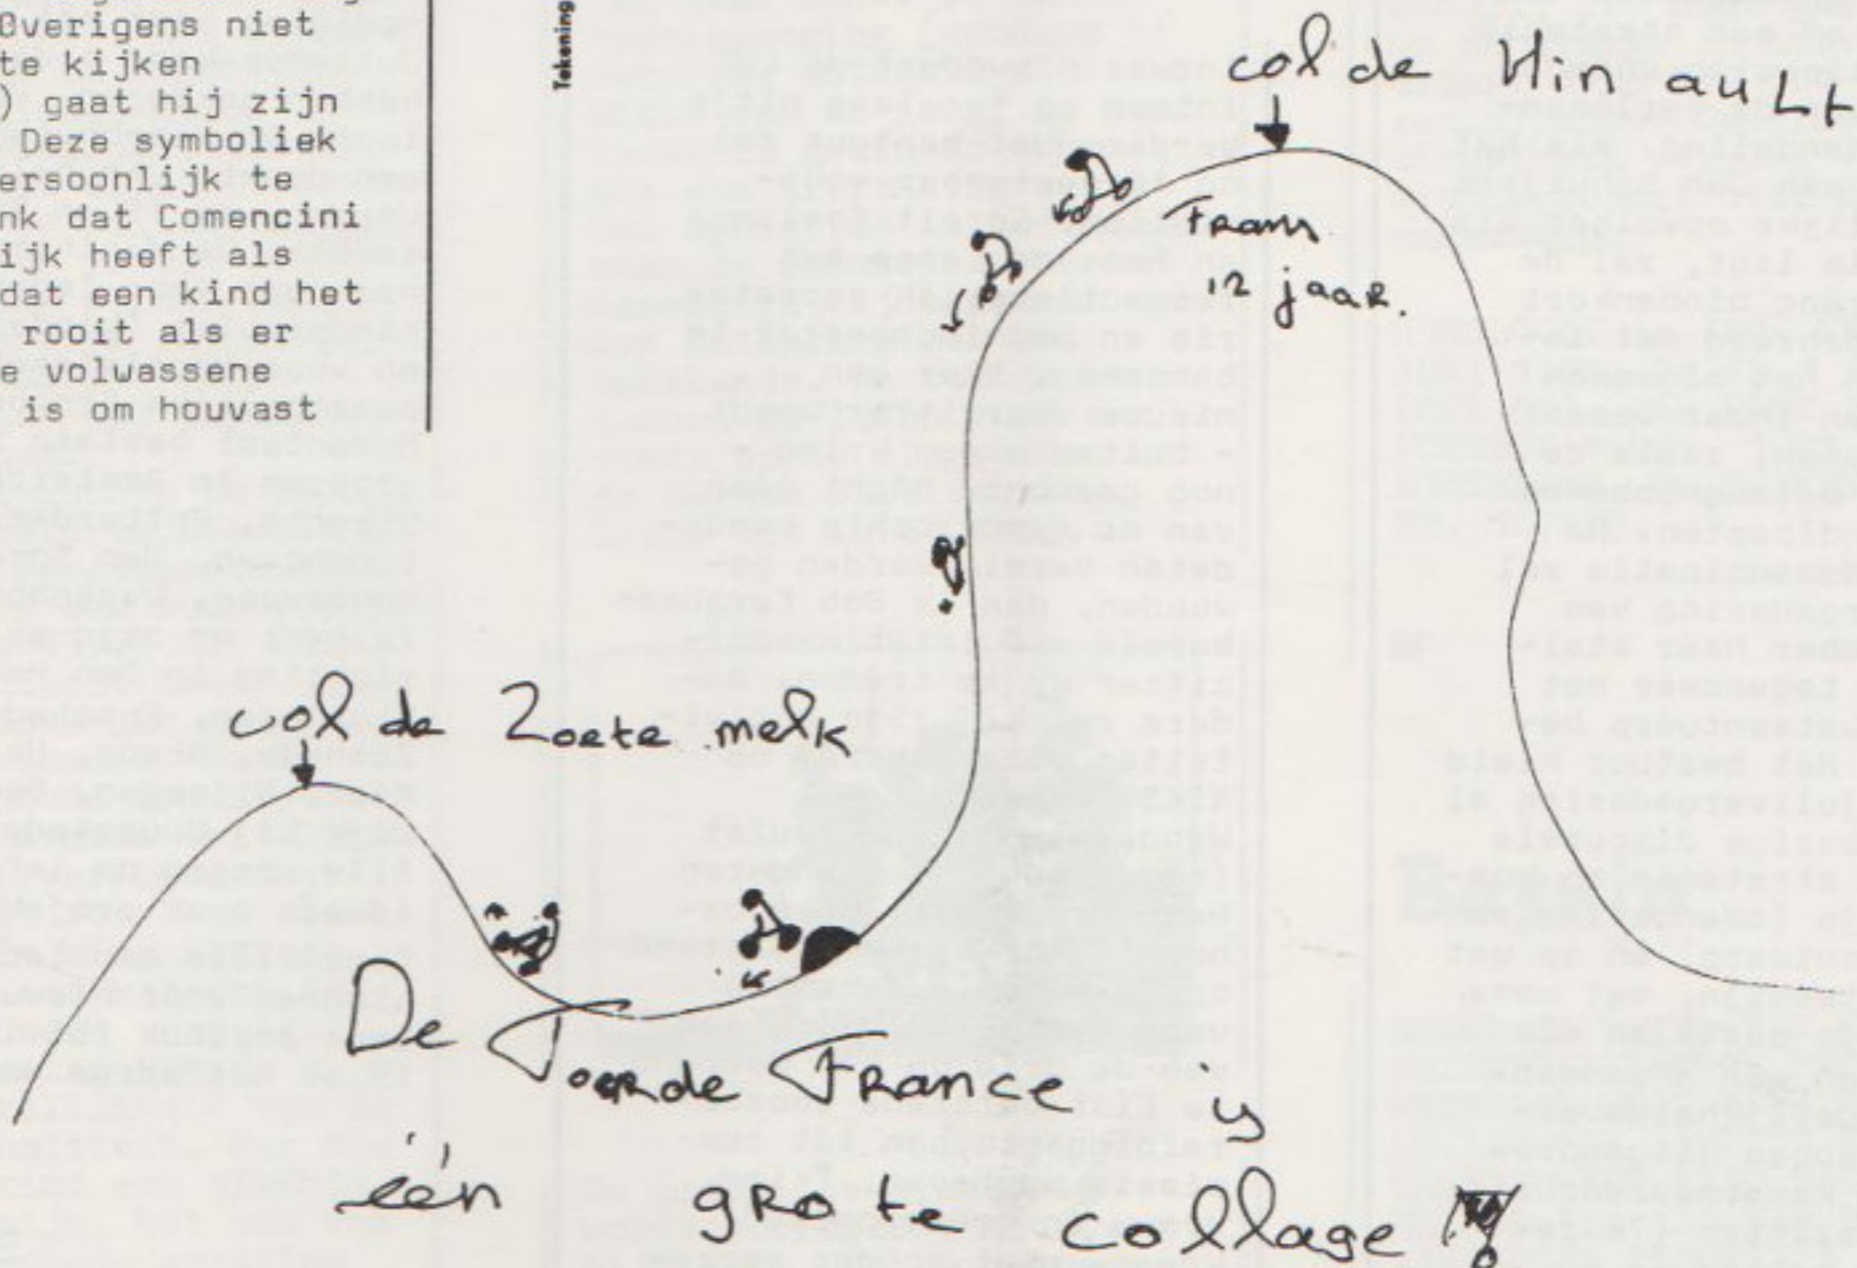 Overigens niet
te kijken
) gaat hij zijn
Deze symboliek
ersoonlijk te
nk dat Comencini
ijk heeft als
dat een kind het
rooit als er
e volwassene
is om houvast
Tekening
col de Hinault
Frans
12 jaar.
col de Zoete melk
De Toer de France is
één grote collage